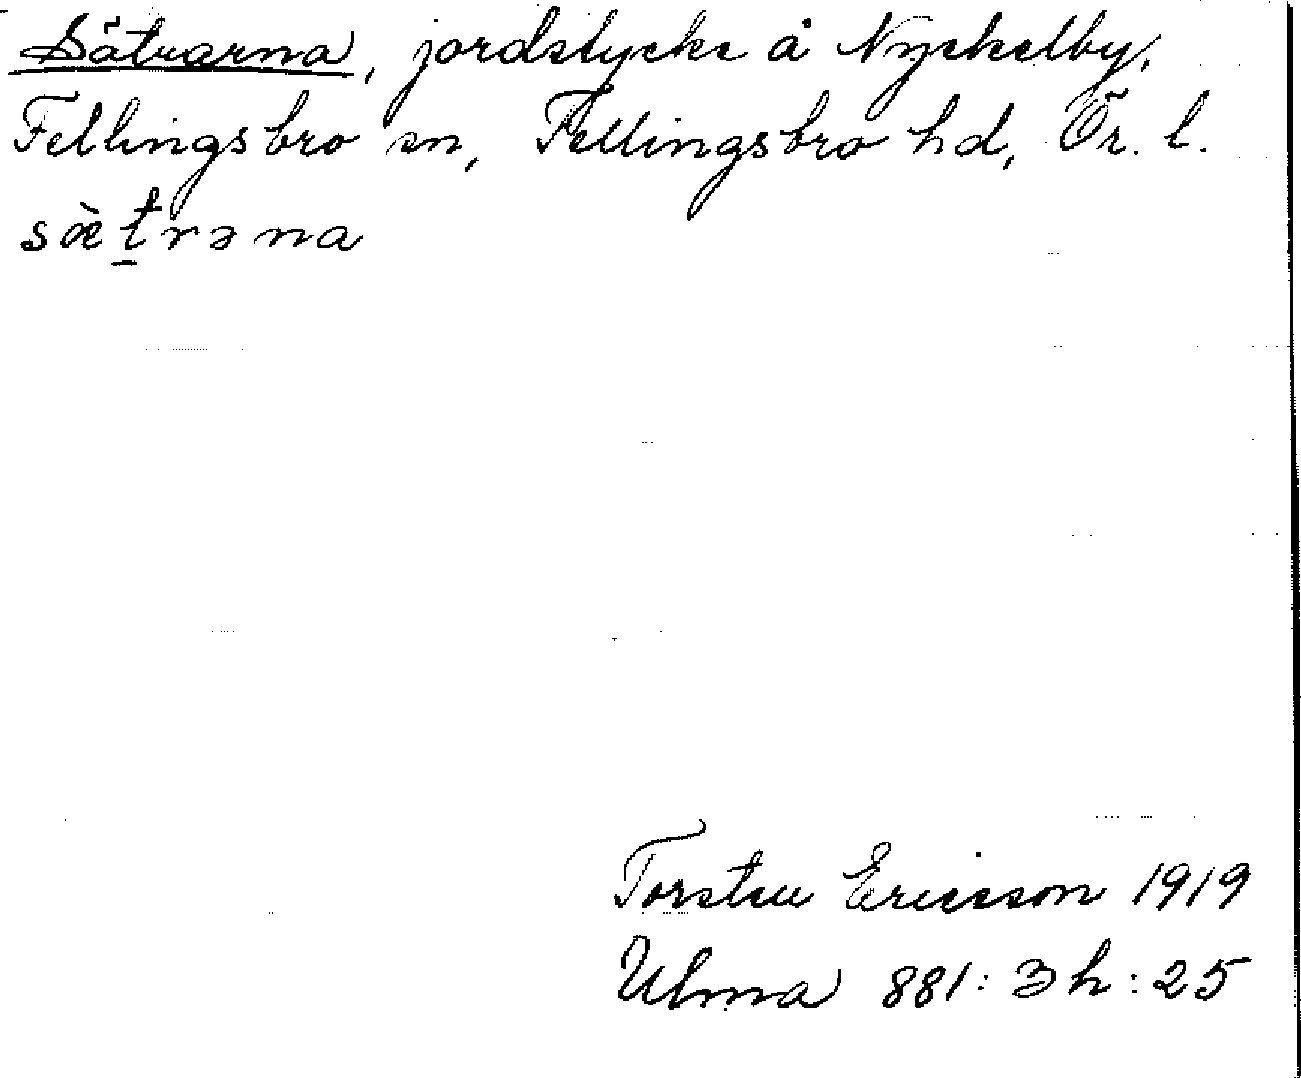 Sätrarna, jordstycke å Nyckelby,
Fellingsbro sn, Fellingsbro hd, Ör. l.
sæ̀t̠rəna
Torsten Ericsson 1919
Ulma 881: 3 h: 25